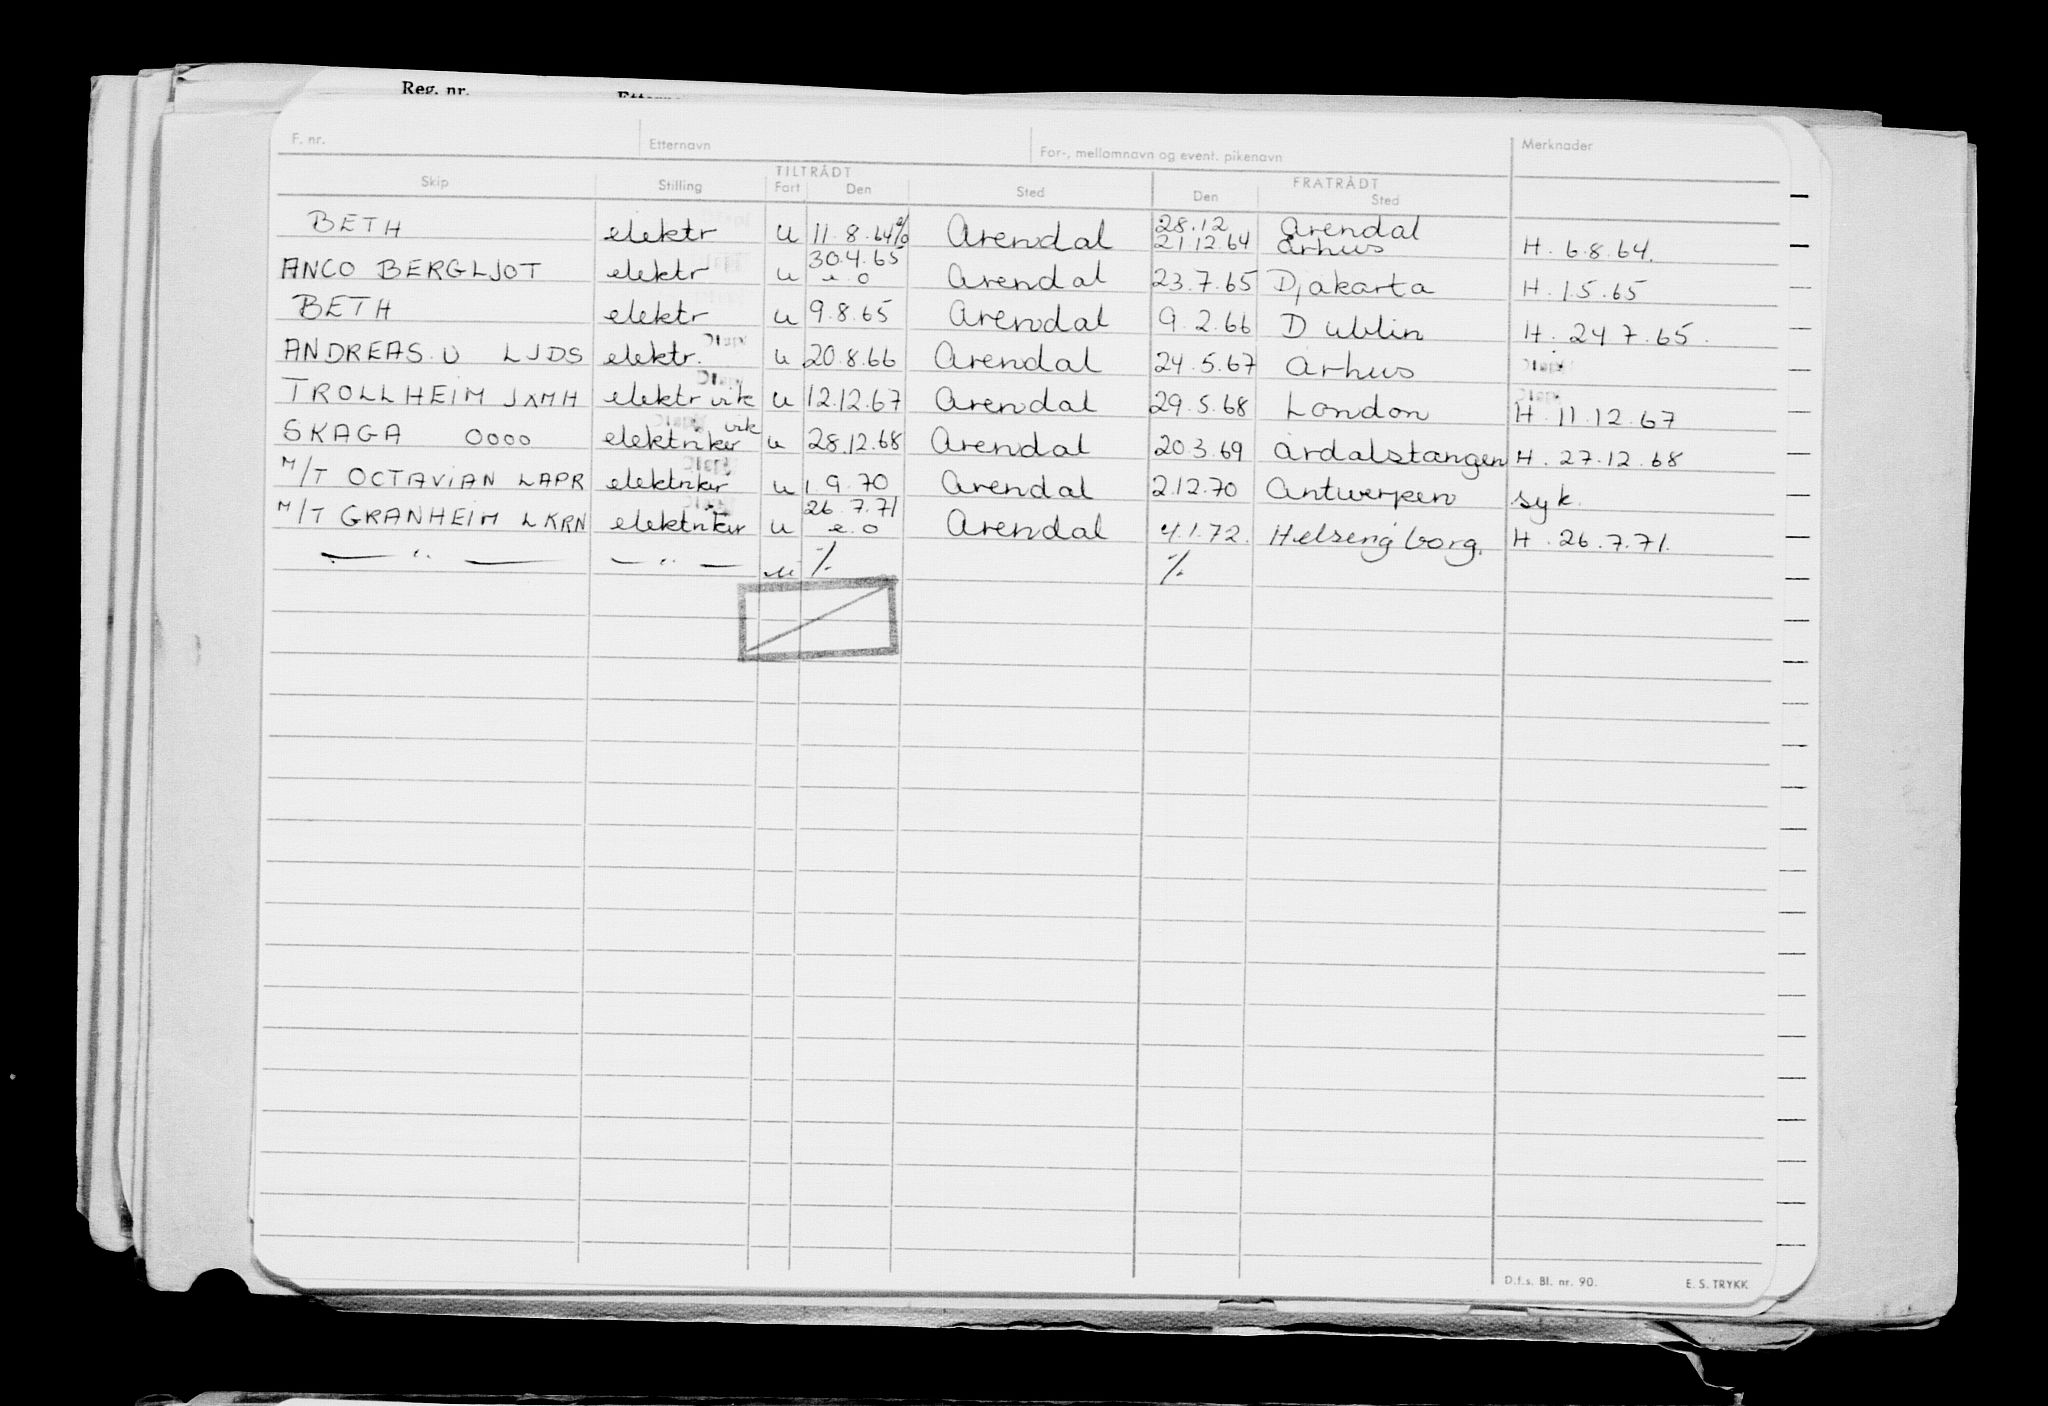 Reg. nr.
F. nr. Etternavn For-, mellomnavn og event. pikenavn Merknader
TILTRÅDT FRATRÅDT
Skip Stilling Fart Den Sted Den Sted
BETH elektr u 11.8.64 % Arendal 28.12 21.12.64 Arendal Århus H. 6.8.64.
ANCO BERGLJOT elektr u 30.4.65 e.o Arendal 23.7.65 Djakarta H. 1.5.65
BETH elektr u 9.8.65 Arendal 9.2.66 Dublin H. 24 7.65.
ANDREAS U LJDS elektr. u 20.8.66 Arendal 24.5.67 Århus
TROLLHEIM JXMH elektr vik u 12.12.67 Arendal 29.5.68 London H. 11.12.67
SKAGA OOOO elektriker vik u 28.12.68 Arendal 20.3.69 Årdalstangen H. 27.12.68
M/T OCTAVIAN LAPR elektriker u 1 9.70 Arendal 2.12.70 Antwerpen syk.
M/T GRANHEIM LKRN elektriker u 26.7.71 e.o Arendal 4.1.72. Helsingborg. H. 26.7.71.
— " — — " — u % %
D.f.s. Bl. nr. 90. E. S. TRYKK